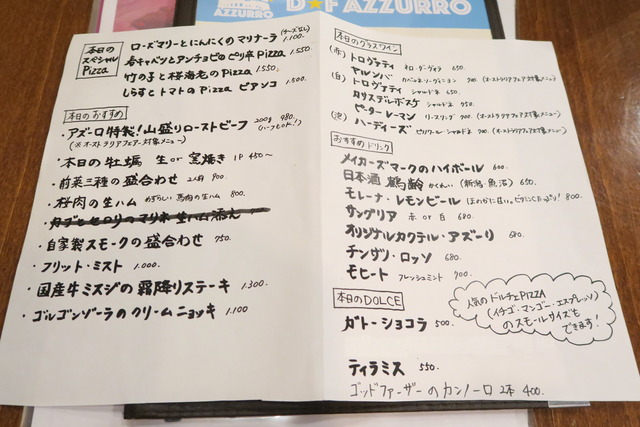 AZZURRO
D★F AZZURRO
本日の
スペシャル
Pizza
ローズマリーとにんにくのマリナーラ (チーズなし) 1.100
春キャベツとアンチョビのピリ辛Pizza 1.550
竹の子と桜海老のPizza 1.550
しらすとトマトのPizza ビアンコ 1.500
本日のおすすめ
・アズーロ特製!山盛りローストビーフ 200g 980. (ハーフもOK!)
(※オーストラリアフェアー対象メニュー)
・本日の牡蠣 生or窯焼き 1P 450~
・前菜三種の盛合わせ 2人前 900
・桜肉の生ハム めずらしい 馬肉の生ハム 800.
・自家製スモークの盛合わせ 750.
・フリット・ミスト 1.000.
・国産牛ミスジの霜降りステーキ 1.300
・ゴルゴンゾーラのクリームニョッキ 1.100
本日のグラスワイン
(赤) トロヴァティ ネロ・ダーヴォラ 650.
ヤルンバ カベルネ・ソーヴィニヨン 700. (オーストラリアフェア対象メニュー)
(白) トロヴァティ シャルドネ 650.
カリステルボスケ シャルドネ 750.
ピーターレーマン リースリング 700. (オーストラリアフェア対象メニュー)
(泡) ハーディーズ ピノノワール・シャルドネ 700. (オーストラリアフェア対象メニュー)
おすすめドリンク
メイカーズマークのハイボール 600.
日本酒 鶴齢 かくれい (新潟・魚沼) 650.
モレーナ・レモンビール ほのかに甘い。ピザにぴったり! 800
サングリア 赤 or 白 680.
オリジナルカクテル・アズーリ 680.
チンザノ・ロッソ 680.
モヒート フレッシュミント 700.
本日のDOLCE
ガトーショコラ 500.
ティラミス 550.
ゴッドファーザーのカンノーロ 2本 400.
人気のドルチェPIZZA
(イチゴ・マンゴー・エスプレッソ)
のスモールサイズも
できます!